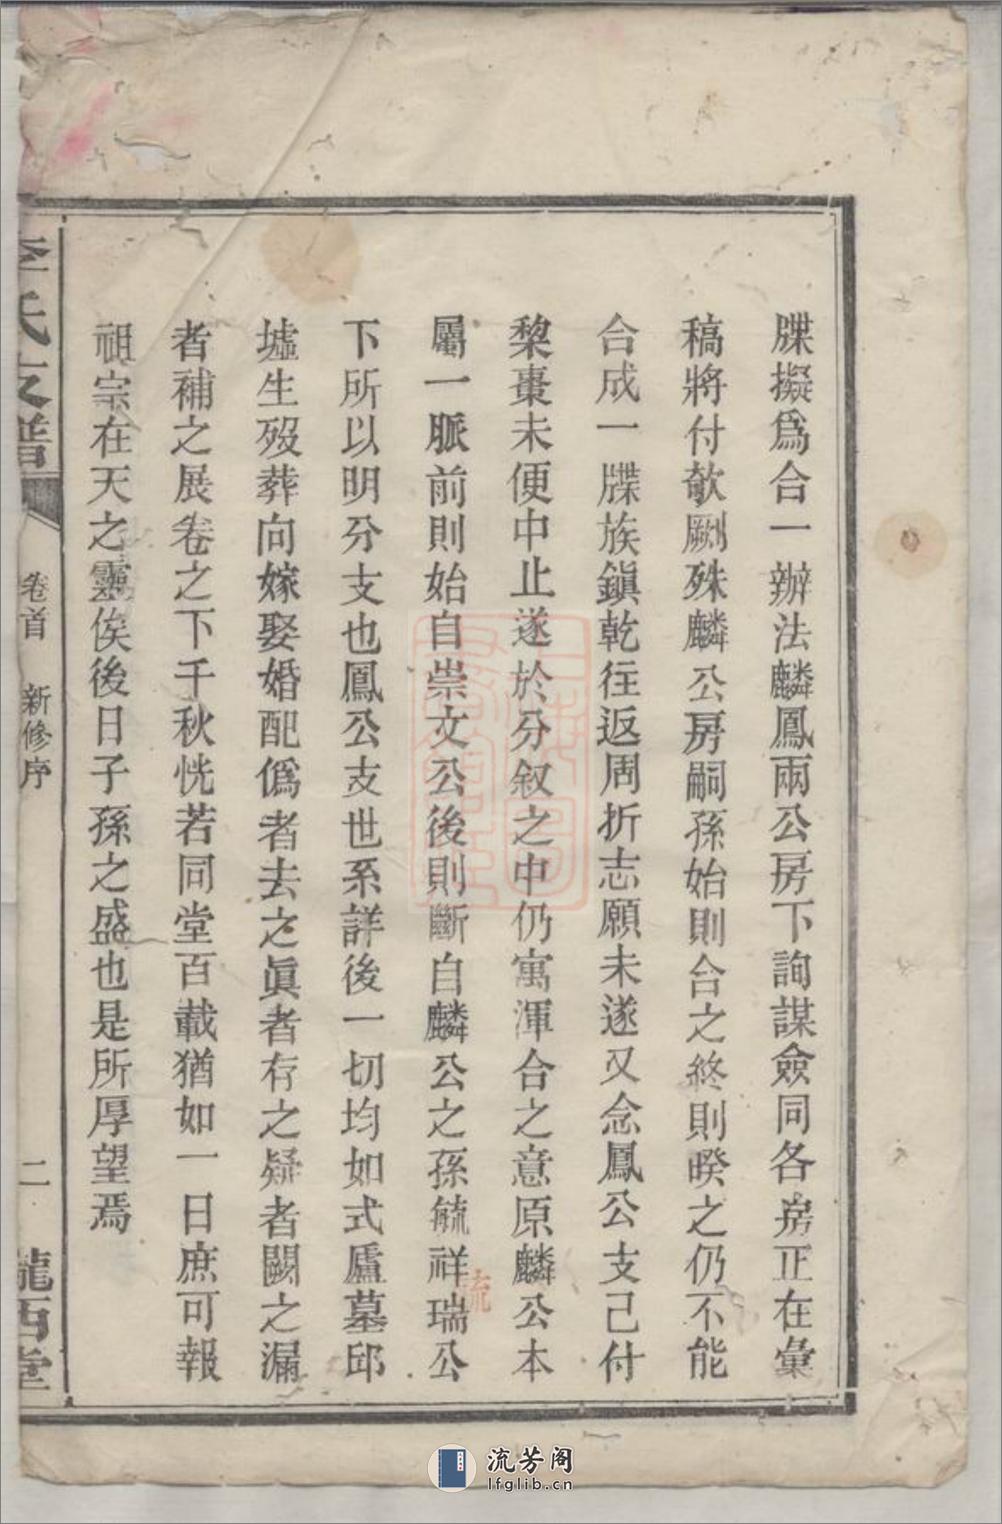 牒擬爲合一辦法麟鳳兩公房下詢謀僉同各房正在彙
稿將付欹劂殊麟公房嗣孫始則合之終則暌之仍不能
合成一牒族鎭乾往返周折志願未遂又念鳳公支己付
棃棗未便中止遂於分叙之中仍寓渾合之意原麟公本
屬一脈前則始自崇文公後則斷自麟公之孫毓祥瑞公
下所以明分支也鳳公支世系詳後一切均如式廬墓邱
墟生殁葬向嫁娶婚配僞者去之眞者存之疑者闕之漏
者補之展卷之下千秋恍若同堂百載猶如一日庶可報
祖宗在天之靈俟後日子孫之盛也是所厚望焉
李氏支譜
卷首 新修序
二
隴西堂
流
流芳阁
lfglib.cn